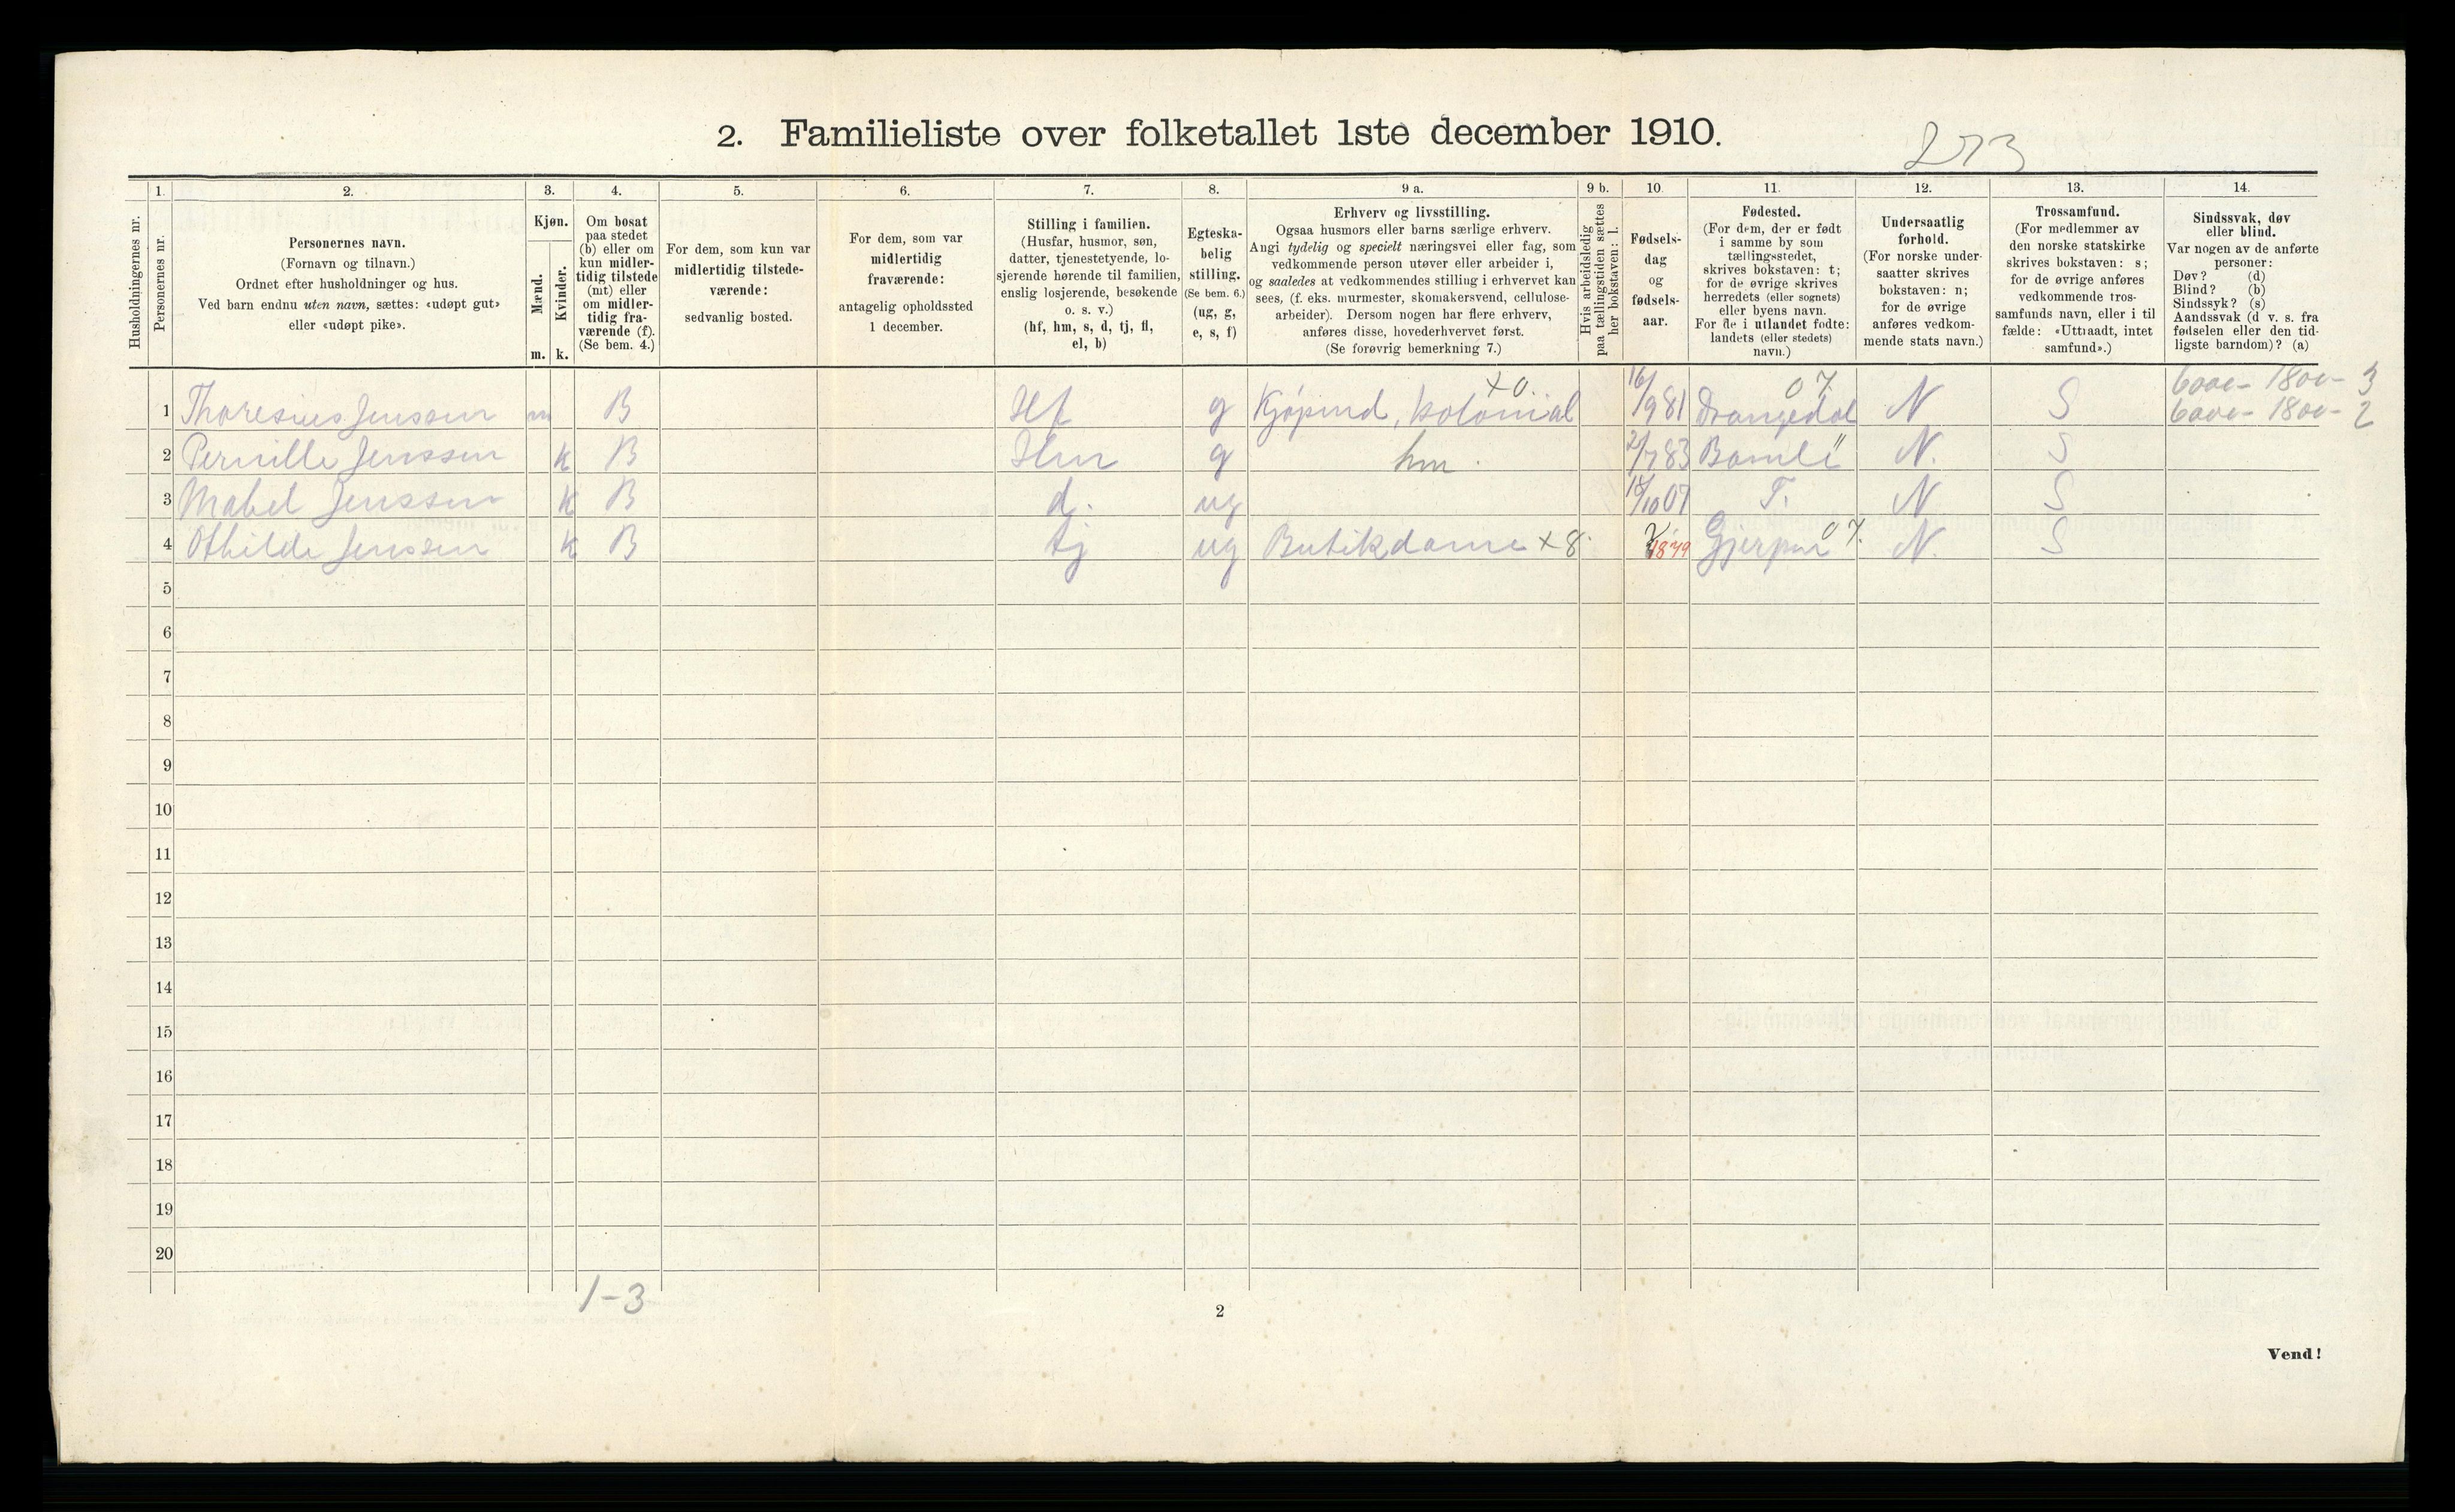 2. Familieliste over folketallet 1ste december 1910.
273
Husholdningernes nr.
1.
Personernes nr.
2.
Personernes navn.
(Fornavn og tilnavn.)
Ordnet efter husholdninger og hus.
Ved barn endnu uten navn, sættes: «udøpt gut»
eller «udøpt pike».
3.
Kjøn.
Mænd.
Kvinder.
m. k.
4.
Om bosat
paa stedet
(b) eller om
kun midler-
tidig tilstede
(mt) eller
om midler-
tidig fra-
værende (f).
(Se bem. 4.)
5.
For dem, som kun var
midlertidig tilstede-
værende:
sedvanlig bosted.
6.
For dem, som var
midlertidig
fraværende:
antagelig opholdssted
1 december.
7.
Stilling i familien.
(Husfar, husmor, søn,
datter, tjenestetyende, lo-
sjerende hørende til familien,
enslig losjerende, besøkende
o. s. v.)
(hf, hm, s, d, tj, fl,
el, b)
8.
Egteska-
belig
stilling.
(Se bem. 6.)
(ug, g,
e, s, f)
9 a.
Erhverv og livsstilling.
Ogsaa husmors eller barns særlige erhverv.
Angi tydelig og specielt næringsvei eller fag, som
vedkommende person utøver eller arbeider i,
og saaledes at vedkommendes stilling i erhvervet kan
sees, (f. eks. murmester, skomakersvend, cellulose-
arbeider). Dersom nogen har flere erhverv,
anføres disse, hovederhvervet først.
(Se forøvrig bemerkning 7.)
9 b.
Hvis arbeidsledig
paa tællingstiden sættes
her bokstaven: l.
10.
Fødsels-
dag
og
fødsels-
aar.
11.
Fødested.
(For dem, der er født
i samme by som
tællingsstedet,
skrives bokstaven: t;
for de øvrige skrives
herredets (eller sognets)
eller byens navn.
For de i utlandet fødte:
landets (eller stedets)
navn.)
12.
Undersaatlig
forhold.
(For norske under-
saatter skrives
bokstaven: n;
for de øvrige
anføres vedkom-
mende stats navn.)
13.
Trossamfund.
(For medlemmer av
den norske statskirke
skrives bokstaven: s;
for de øvrige anføres
vedkommende tros-
samfunds navn, eller i til
fælde: «Uttraadt, intet
samfund».)
14.
Sindssvak, døv
eller blind.
Var nogen av de anførte
personer:
Døv? (d)
Blind? (b)
Sindssyk? (s)
Aandssvak (d v. s. fra
fødselen eller den tid-
ligste barndom)? (a)
x0. 07. 6000- 1800- 3
1 Thoresius Jenssen m B Hf g Kjøpmd, kolonial 16/9 81 Drangedal N S 6000- 1800- 2
2 Pernille Jenssen k B Hm g hm. 2/7 83 Bamle " N. S
3 Mabel Jenssen k B d. ug 18/10 07 T. N S
4 Othilde Jenssen k B tj ug Butikdame x8. 1879 Gjerpen 07. N. S
5
6
7
8
9
10
11
12
13
14
15
16
17
18
19
20
1-3
2
Vend!